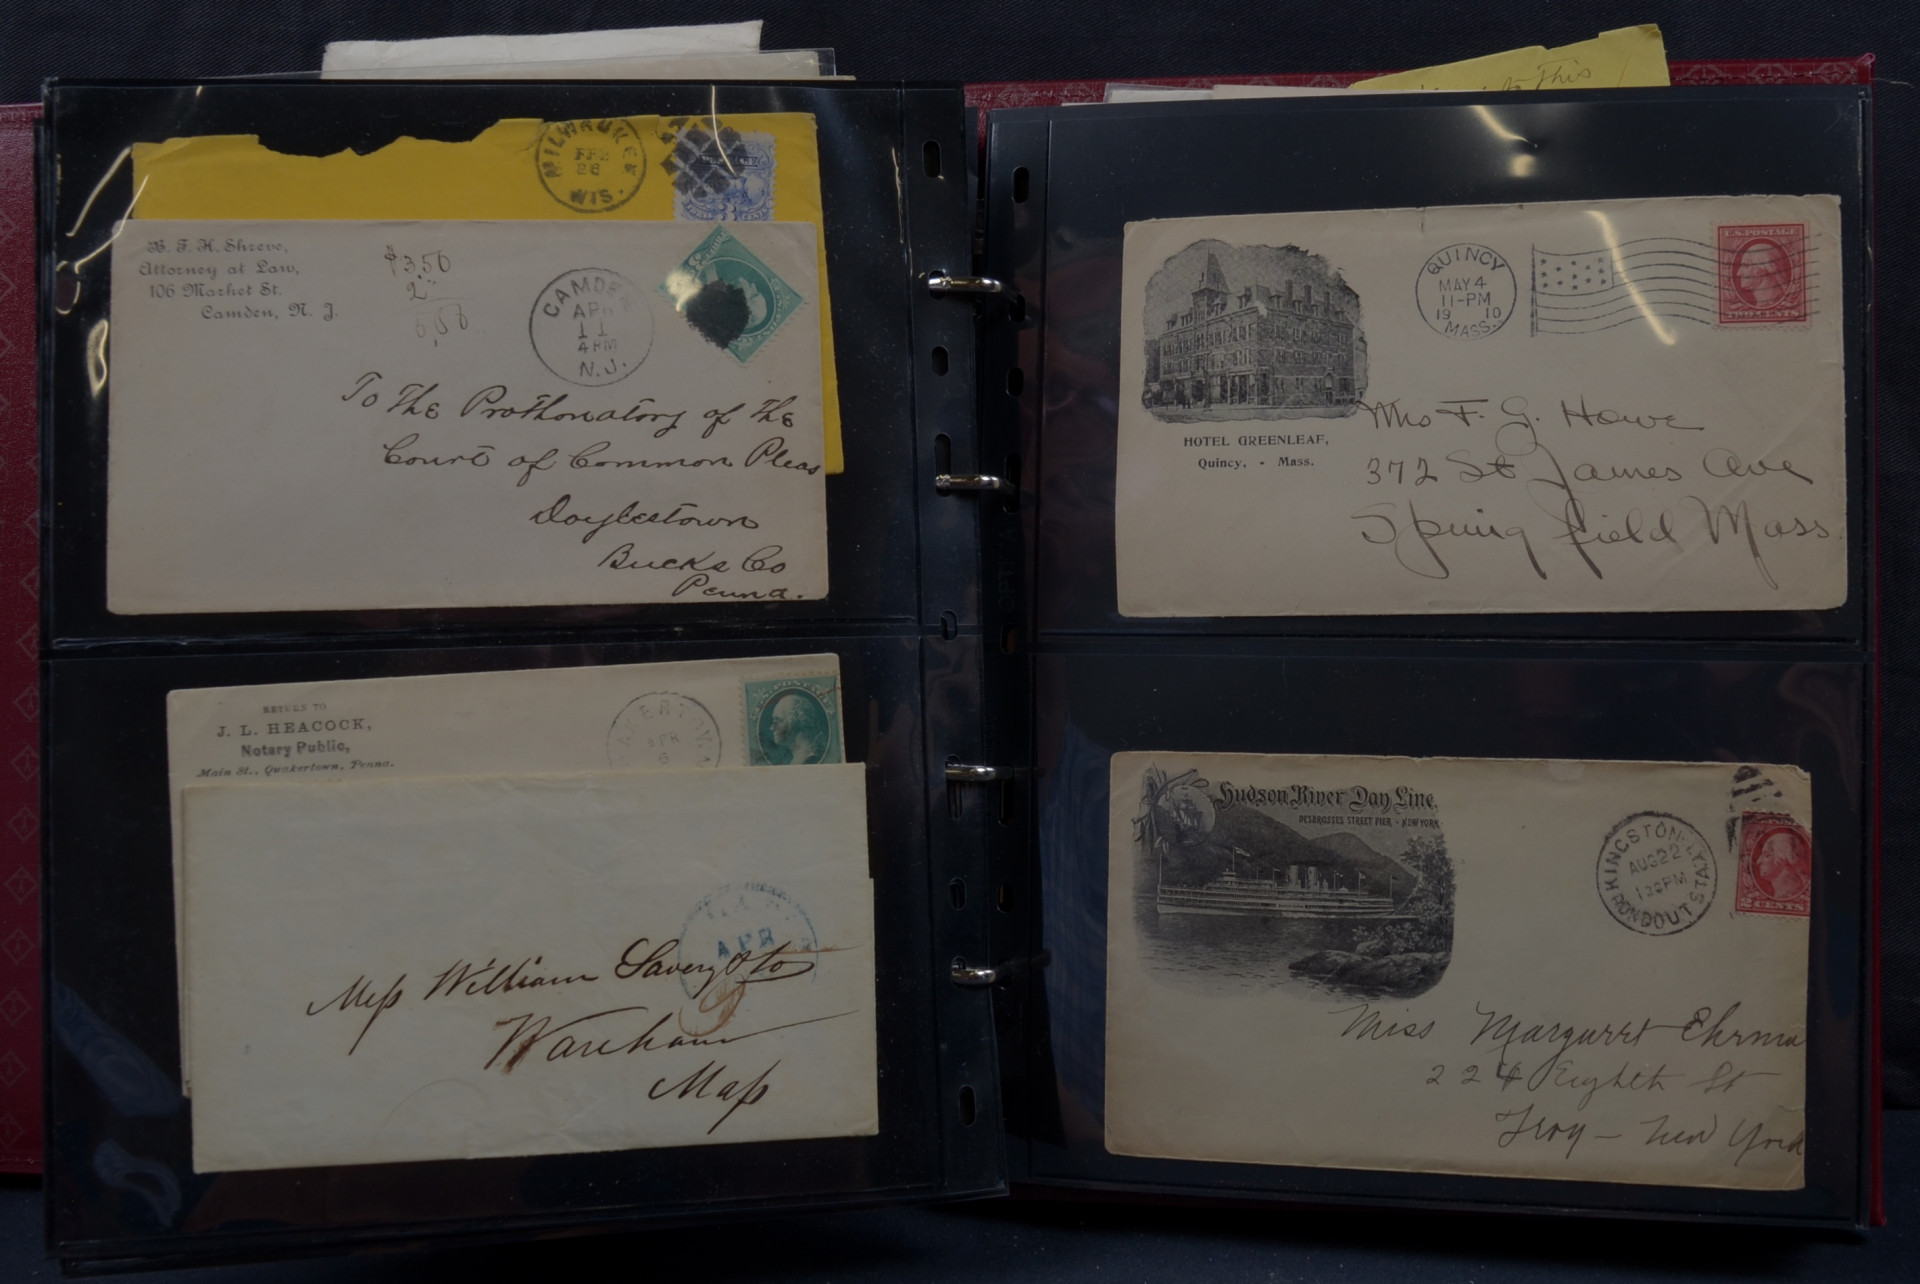 to This
MILWAUKEE
FEB
26
WIS.
B. F. H. Shreve,
Attorney at Law,
106 Market St.
Camden, N. J.
$3.50
2"
CAMDEN
APR
11
4 PM
N.J.
To the Prothonatory of the
Court of Common Pleas
Doylestown
Bucks Co
Penna.
RETURN TO
J. L. HEACOCK,
Notary Public,
Main St., Quakertown, Penna.
APR
6
U.S. POSTAGE
APR
Mess William Savery & Co
Wareham
Mass
HOTEL GREENLEAF,
Quincy, - Mass.
QUINCY
MAY 4
11-PM
19 10
MASS.
U.S. POSTAGE
TWO CENTS
Mrs F. G. Howe
372 St James Ave
Spring field Mass.
Hudson River Day Line.
DESBROSSES STREET PIER - NEW YORK
KINGSTON, N.Y.
AUG 22
1 30 PM
RONDOUT STA.
2 CENTS
Miss Margaret Ehrma
224 Eighth St
Troy – New York